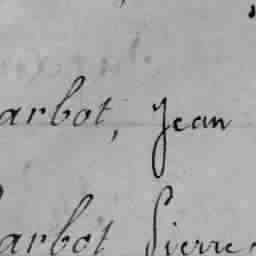 arbot, Jean
arbot Pierre